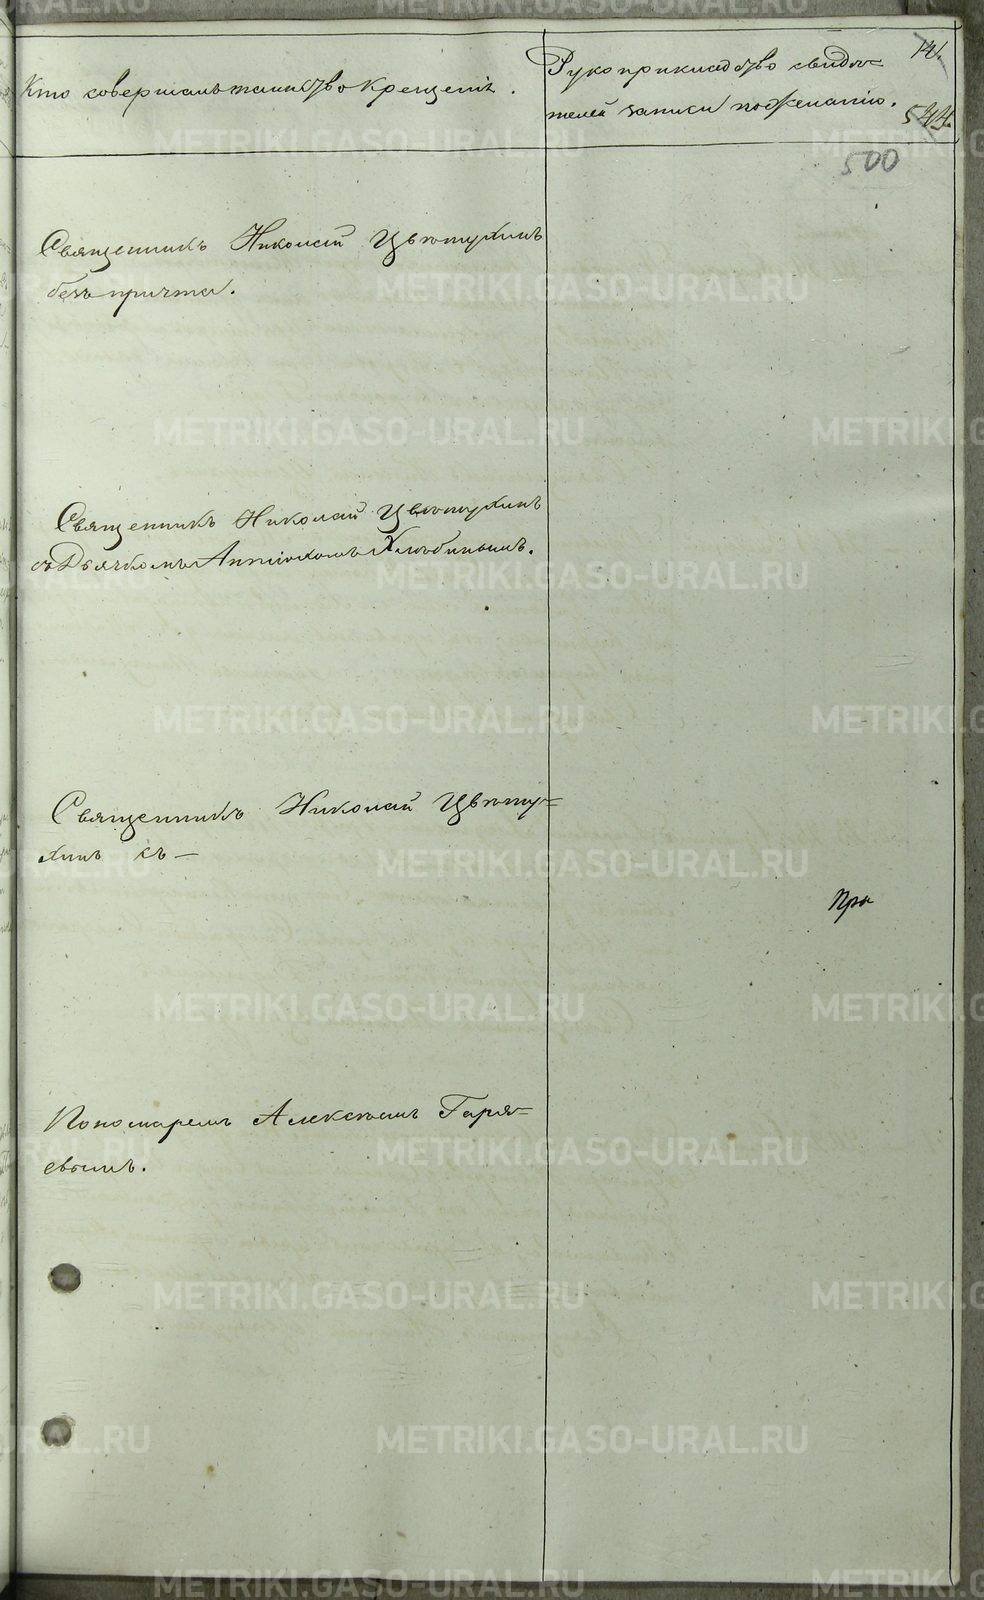 Кто совершалъ таинство Крещенія.
Рукоприкладство свидѣ=
телей записи по желанію.
141.
544.
500
Священникъ Николай Цвѣтухинъ
безъ причта.
Священникъ Николай Цвѣтухинъ
съ Дьячкомъ Антіохомъ Хлѣбинымъ.
Священникъ Николай Цвѣту=
хинъ съ —
При
Пономаремъ Алексѣемъ Гаря=
евымъ.
METRIKI.GASO-URAL.RU